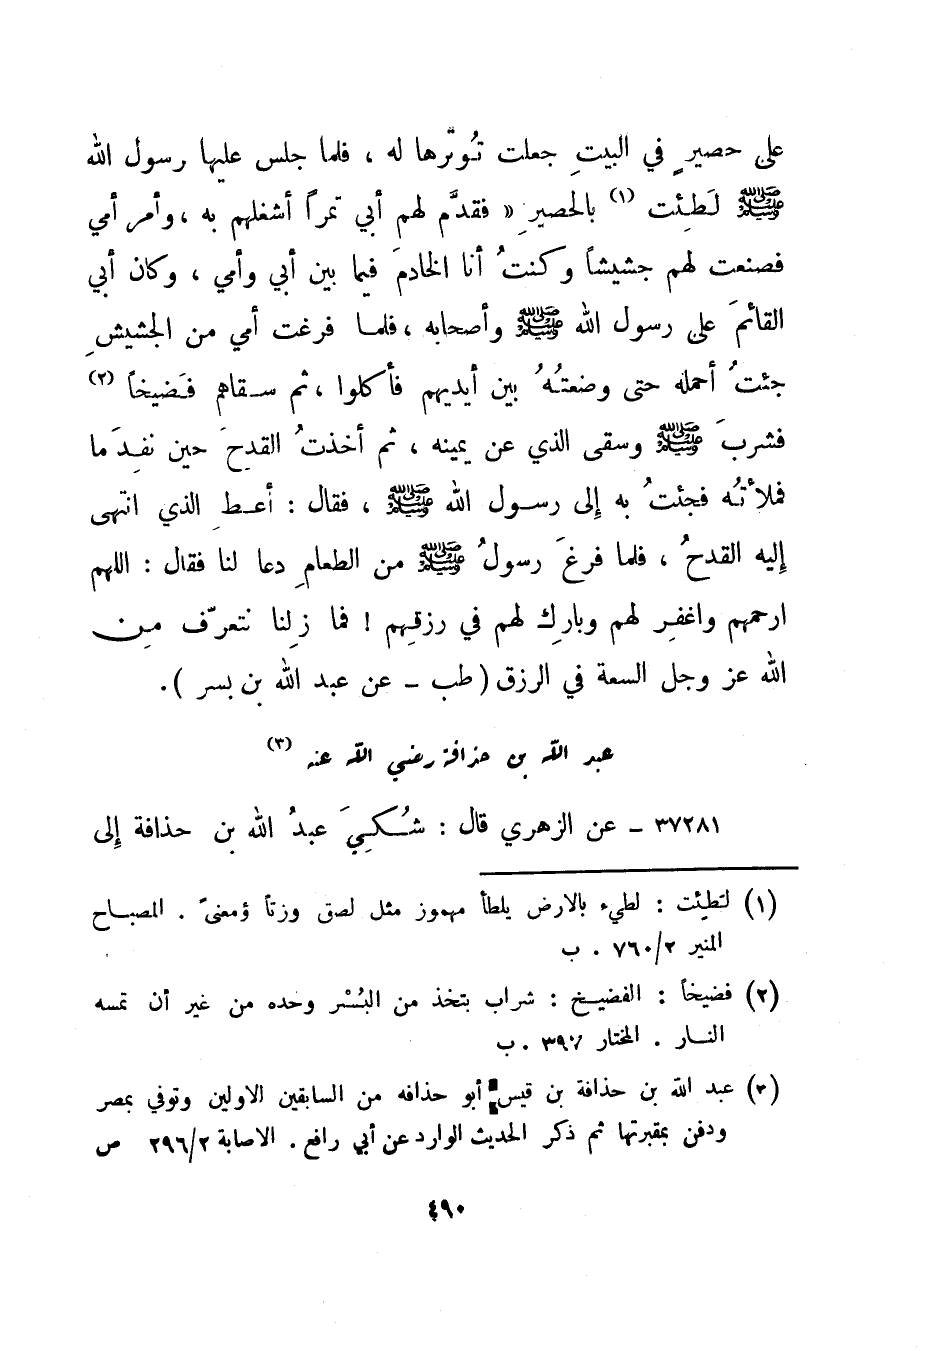 على حصيرٍ في البيتِ جعلت تُوتّرها له ، فلما جلس عليها رسول الله
ﷺ لَطِئت (١) بالحصيرِ « فقدَّم لهم أبي تمراً أشغلهم به ، وأمر أمي
فصنعت لهم جشيشاً وكنتُ أنا الخادمَ فيما بين أبي وأمي ، وكان أبي
القائمَ على رسول الله ﷺ وأصحابه ، فلما فرغت أمي من الجشيشِ
جئتُ أحمله حتى وضعتُهُ بين أيديهم فأكلوا ، ثم سقاهم فَضيخاً (٢)
فشربَ ﷺ وسقى الذي عن يمينه ، ثم أخذتُ القدحَ حين نفِدَ ما
فملأتُه فجئتُ به إلى رسول الله ﷺ ، فقال : أعطِ الذي انتهى
إليه القدحُ ، فلما فرغَ رسولُ ﷺ من الطعامِ دعا لنا فقال : اللهم
ارحمهم واغفِر لهم وبارِك لهم في رزقِهم ! فما زِلنا نتعرّف مِن
الله عز وجل السعة في الرزق ( طب ـ عن عبد الله بن بسر ) .
عبد الله بن حذافة رضي الله عنه (٣)
٣٧٢٨١ ـ عن الزهري قال : شُكِيَ عبدُ الله بن حذافة إلى
(١) لَطِئت : لطيء بالارض يلطأ مهموز مثل لصق وزناً ومعنىً . المصباح
المنير ٧٦٠/٢ . ب
(٢) فضيخاً : الفضيخ : شراب يتخذ من البُسْر وحده من غير أن تمسه
النار . المختار ٣٩٧ . ب
(٣) عبد الله بن حذافة بن قيس أبو حذافه من السابقين الاولين وتوفي بمصر
ودفن بمقبرتها ثم ذكر الحديث الوارد عن أبي رافع . الاصابة ٢٩٦/٢ ص
٤٩٠